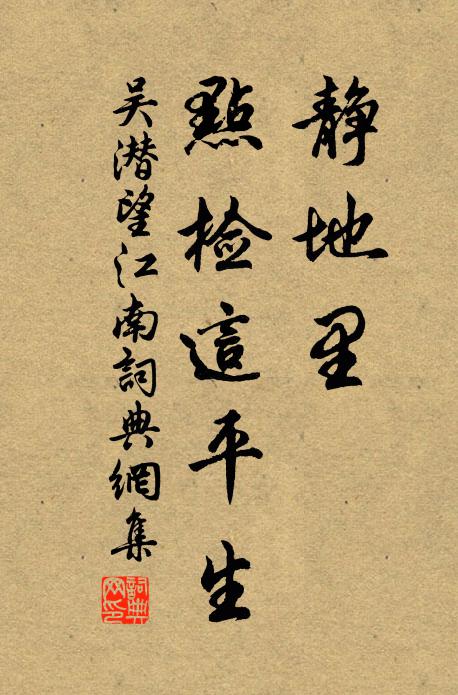 静地里
點检這平生
吴潜望江南詞典網集
詞典网印